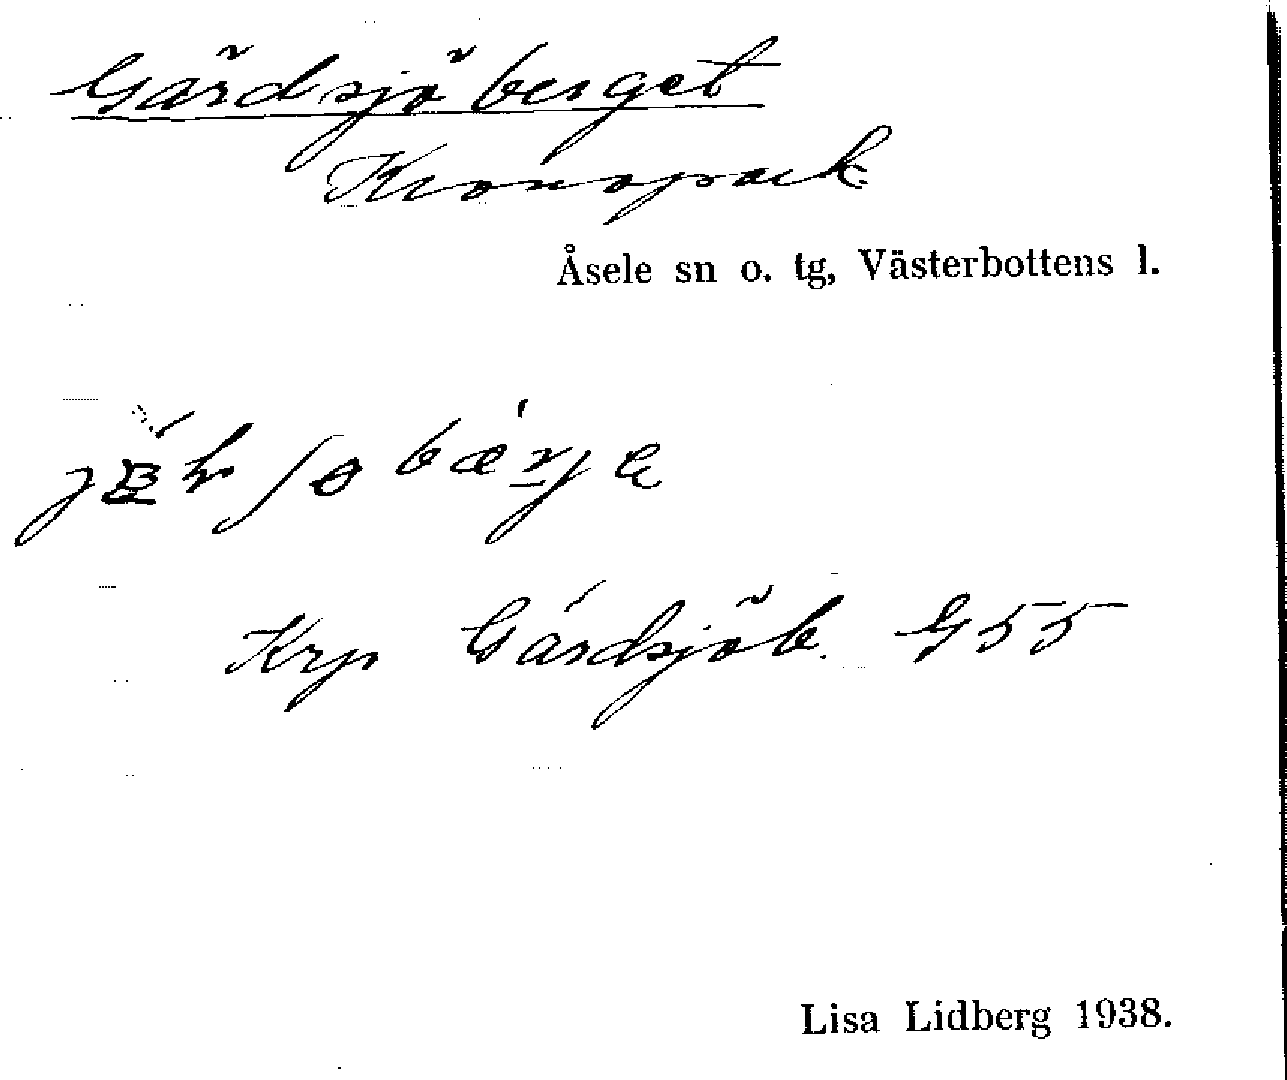 Gärdsjöberget
Kronopark
Åsele sn o. tg, Västerbottens l.
Krp Gärdsjöb. G55
Lisa Lidberg 1938.